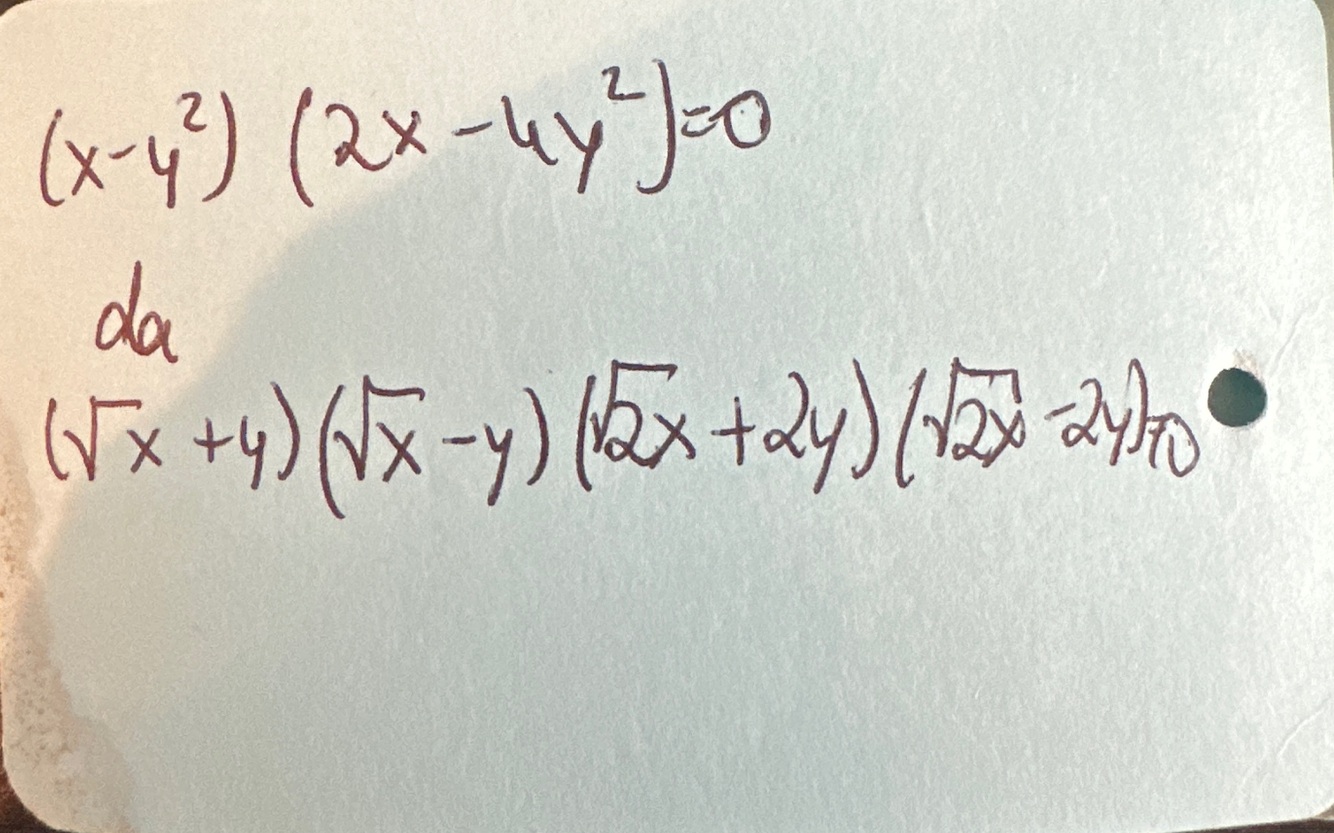 (x-y²) (2x-4y²)=0
da
(√x +y)(√x -y)(√2x +2y)(√2x -2y)=0